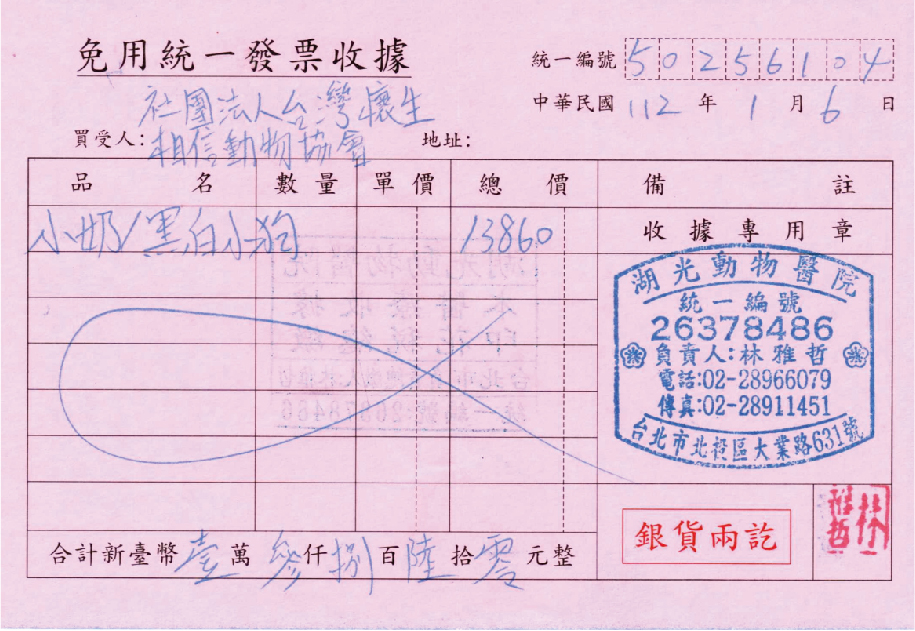 免用統一發票收據
統一編號 50256104
中華民國 112 年 1 月 6 日
社團法人台灣懷生
買受人: 相信動物協會 地址:
品名 數量 單價 總價 備註
小奶/黑白小狗 13860 收據專用章
湖光動物醫院
統一編號
26378486
負責人:林雅哲
電話:02-28966079
傳真:02-28911451
台北市北投區大業路631號
合計新臺幣壹萬參仟捌百陸拾零元整
銀貨兩訖
林雅哲